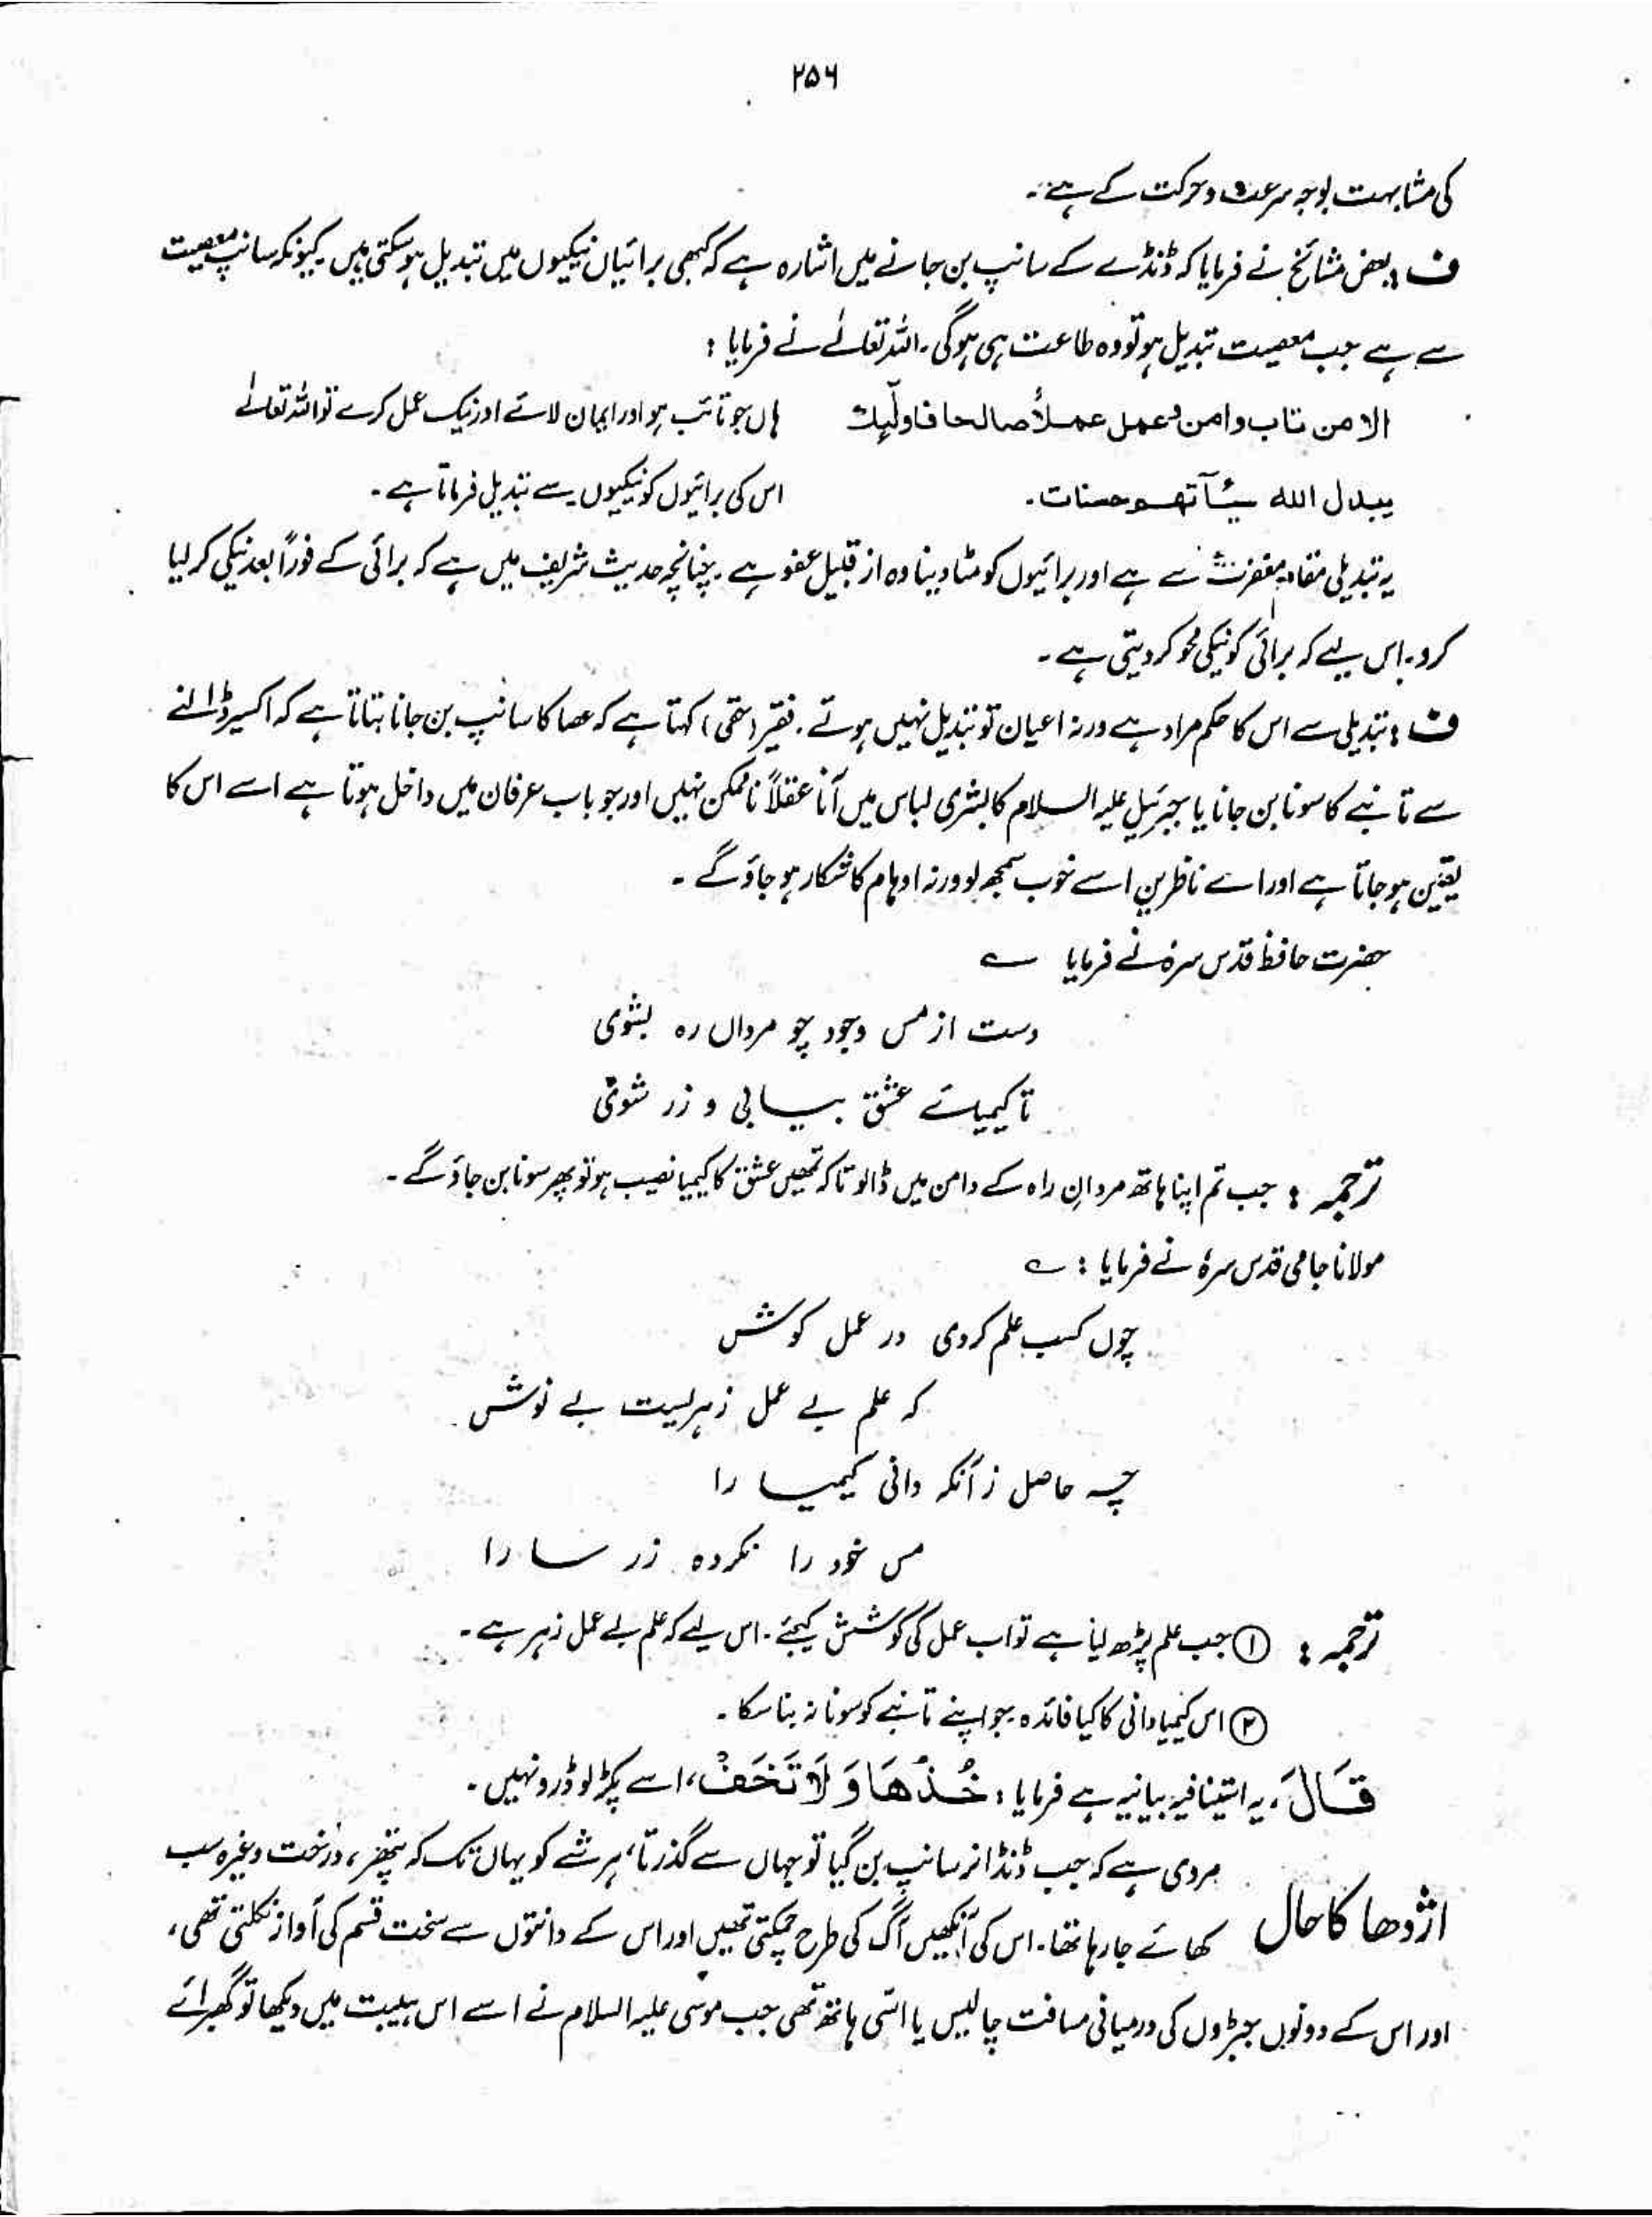 ۲۵۶
کی مشابہت بوجہ سرعت و حرکت کے ہے۔
ف : بعض مشائخ نے فرمایا کہ ڈنڈے کے سانپ بن جانے میں اشارہ ہے کہ کبھی برائیاں نیکیوں میں تبدیل ہو سکتی ہیں کیونکہ سانپ معصیت
سے ہے جب معصیت تبدیل ہو تو وہ طاعت ہی ہو گی۔ اللہ تعالےٰ نے فرمایا :
الا من تاب وامن وعمل عملاً صالحا فاولٓئک ہاں جو تائب ہو اور ایمان لائے اور نیک عمل کرے تو اللہ تعالےٰ
یبدل اللہ سیّاٰتھم حسنات۔ اس کی برائیوں کو نیکیوں سے تبدیل فرماتا ہے۔
یہ تبدیلی مقام مغفرت سے ہے اور برائیوں کو مٹا دینا وہ از قبیل عفو ہے۔ چنانچہ حدیث شریف میں ہے کہ برائی کے فوراً بعد نیکی کر لیا
کرو۔ اس لیے کہ برائی کو نیکی محو کر دیتی ہے۔
ف : تبدیلی سے اس کا حکم مراد ہے ورنہ اعیان تو تبدیل نہیں ہوتے۔ فقیر (حقی) کہتا ہے کہ عصا کا سانپ بن جانا بتاتا ہے کہ اکسیر ڈالنے
سے تانبے کا سونا بن جانا یا جبرئیل علیہ السلام کا بشری لباس میں آنا عقلاً ناممکن نہیں اور جو باب عرفان میں داخل ہوتا ہے اسے اس کا
یقین ہو جاتا ہے اور اے ناظرین اسے خوب سمجھ لو ورنہ اوہام کا شکار ہو جاؤ گے۔
حضرت حافظ قدس سرہٗ نے فرمایا ؎
دست از مس وجود چو مرداں رہ بشوی
تا کیمیائے عشق بیابی و زر شوی
ترجمہ : جب تم اپنا ہاتھ مردانِ راہ کے دامن میں ڈالو تا کہ تمھیں عشق کا کیمیا نصیب ہو تو پھر سونا بن جاؤ گے۔
مولانا جامی قدس سرہٗ نے فرمایا : ؎
چوں کسب علم کردی در عمل کوش
کہ علم بے عمل زہریست بے نوش
چہ حاصل ز آنکہ دانی کیمیا را
مس خود را نکردہ زر سارا
ترجمہ : ① جب علم پڑھ لیا ہے تو اب عمل کی کوشش کیجئے۔ اس لیے کہ علم بے عمل زہر ہے۔
② اس کیمیا دانی کا کیا فائدہ جو اپنے تانبے کو سونا نہ بنا سکا۔
قَالَ، یہ استینافیہ بیانیہ ہے فرمایا : خُذْھَا وَلَا تَخَفْ، اسے پکڑ لو ڈرو نہیں۔
اژدھا کا حال مروی ہے کہ جب ڈنڈا نر سانپ بن گیا تو جہاں سے گذرتا، ہر شے کو یہاں تک کہ پتھر، درخت وغیرہ سب
کھائے جا رہا تھا۔ اس کی آنکھیں آگ کی طرح چمکتی تھیں اور اس کے دانتوں سے سخت قسم کی آواز نکلتی تھی،
اور اس کے دونوں جبڑوں کی درمیانی مسافت چالیس یا اسّی ہاتھ تھی جب موسیٰ علیہ السلام نے اسے اس ہیبت میں دیکھا تو گھبرائے